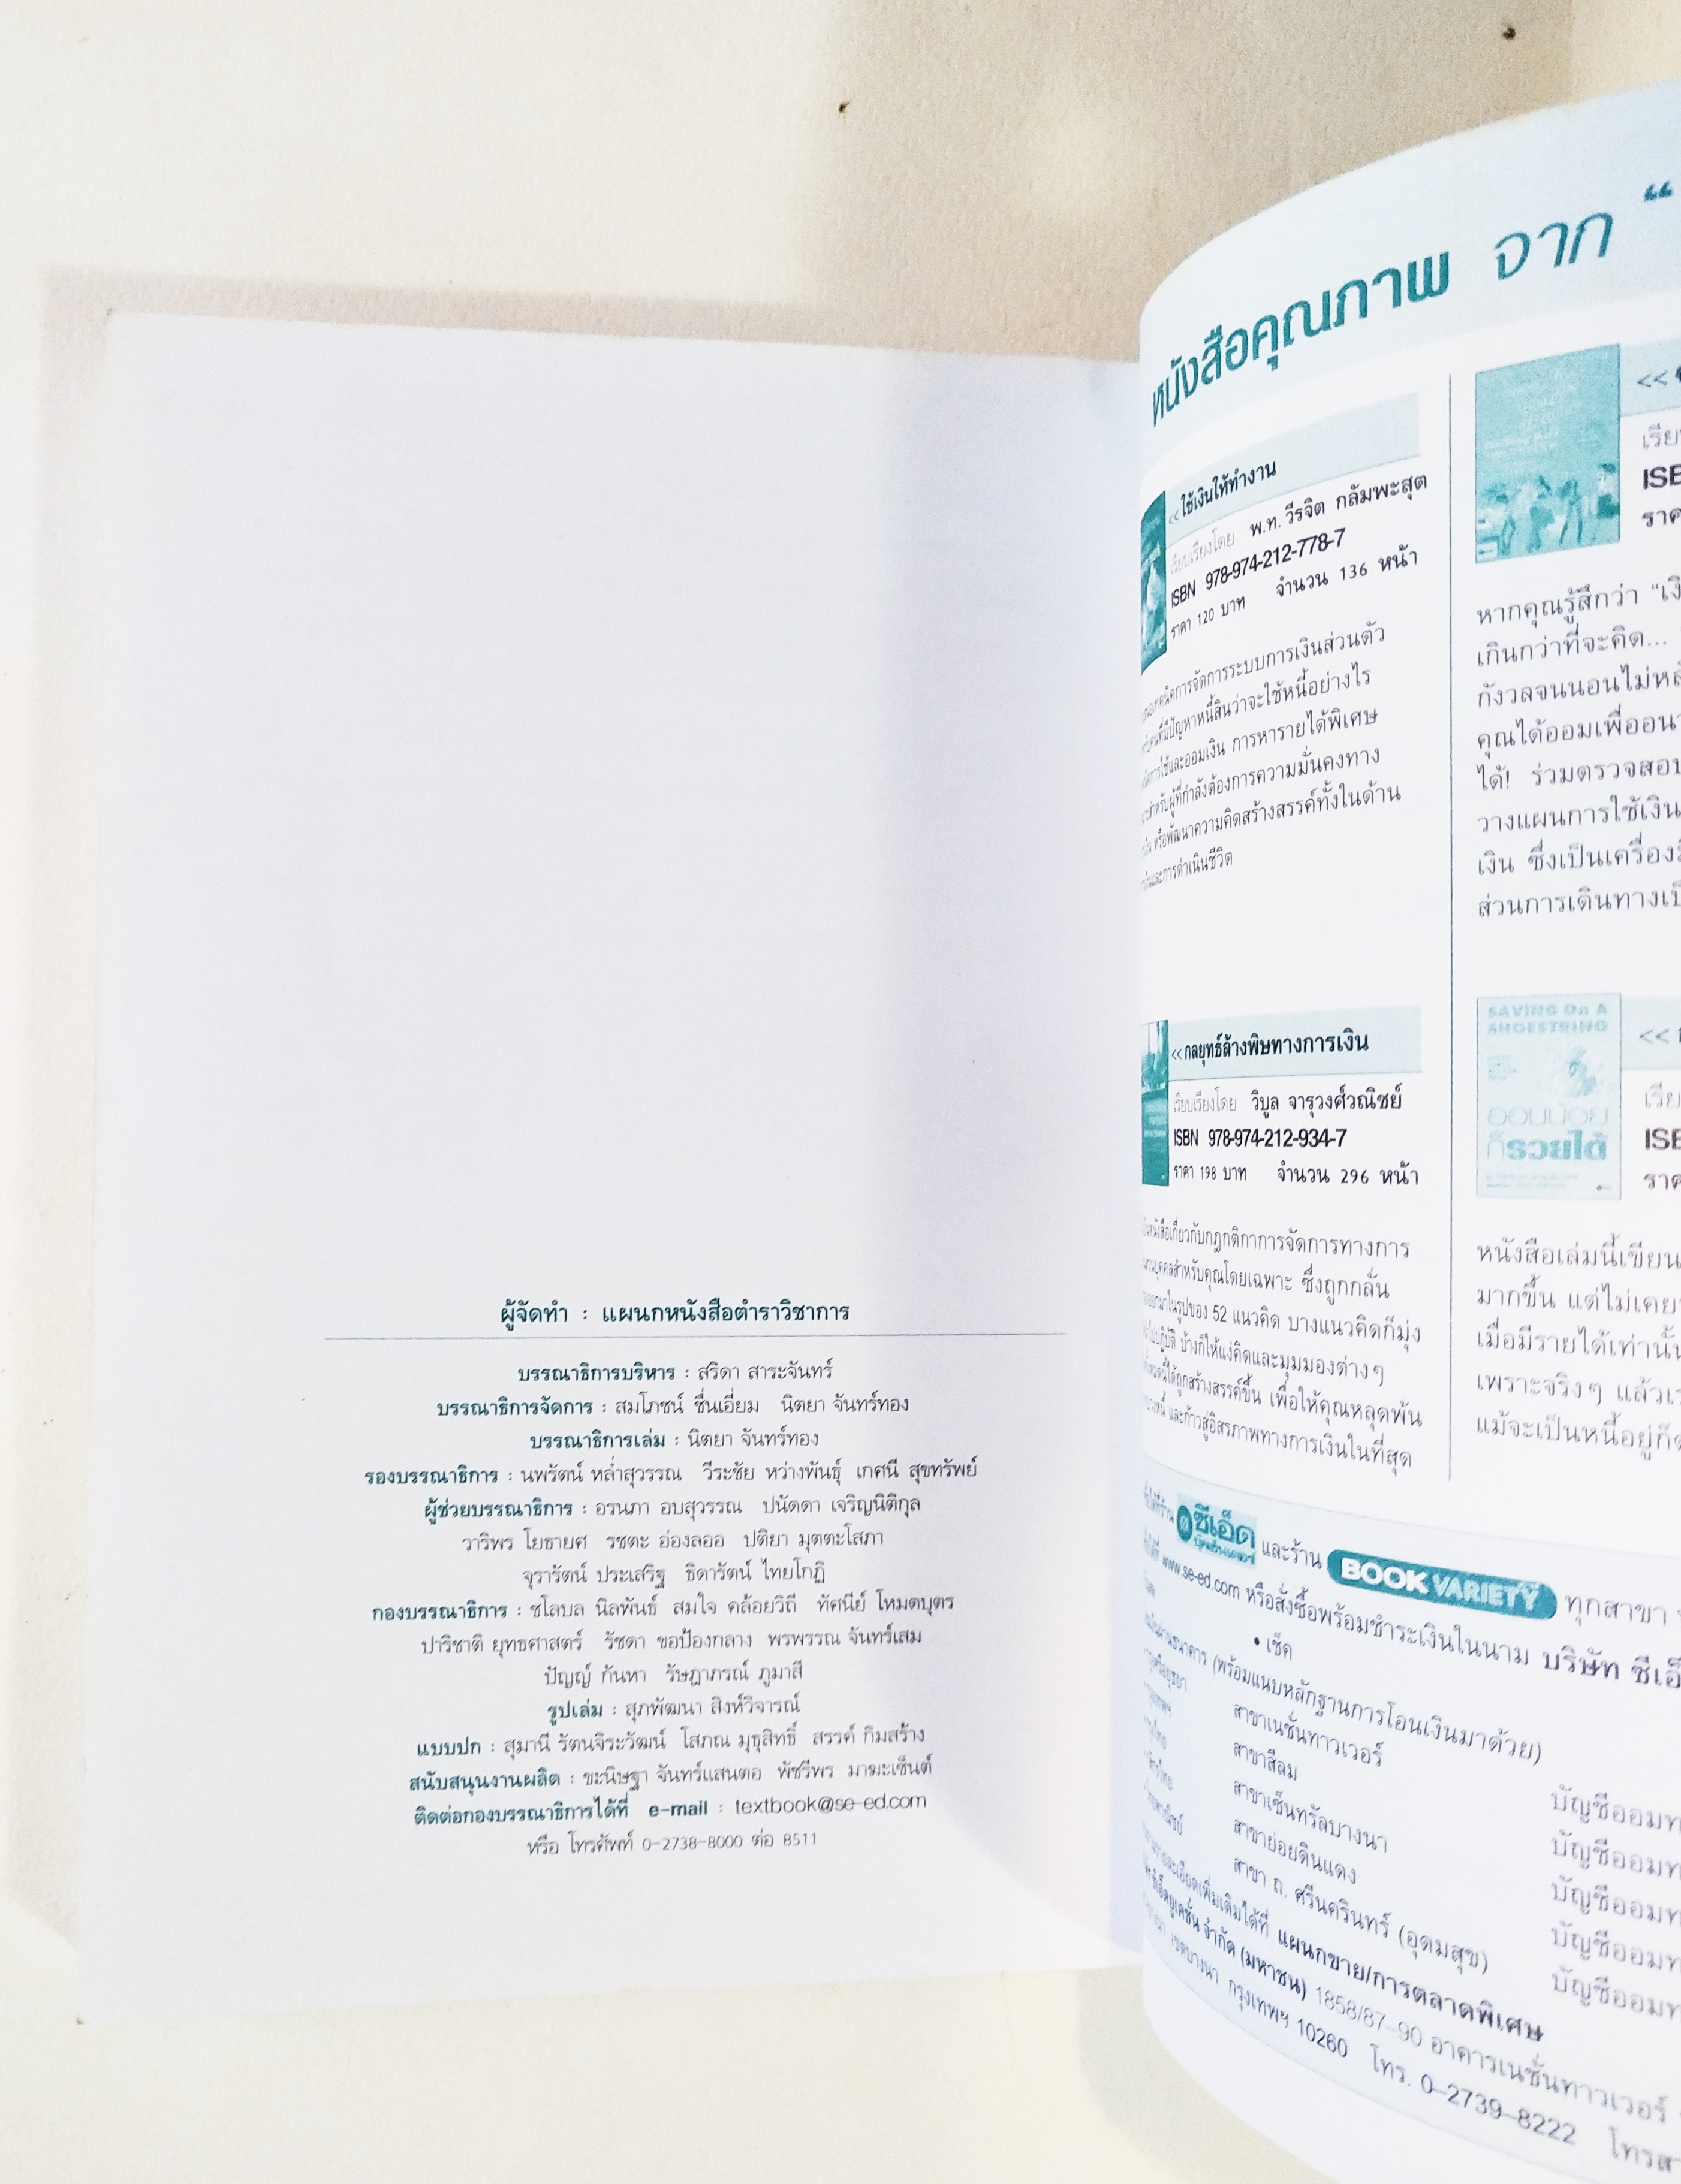 ผู้จัดทำ : แผนกหนังสือตำราวิชาการ
บรรณาธิการบริหาร : สริดา สาระจันทร์
บรรณาธิการจัดการ : สมโภชน์ ชื่นเอี่ยม นิตยา จันทร์ทอง
บรรณาธิการเล่ม : นิตยา จันทร์ทอง
รองบรรณาธิการ : นพรัตน์ หล่ำสุวรรณ วีระชัย หว่างพันธุ์ เกศนี สุขทรัพย์
ผู้ช่วยบรรณาธิการ : อรนภา อบสุวรรณ ปนัดดา เจริญนิติกุล
วาริพร โยธายศ รชตะ อ่องลออ ปติยา มุตตะโสภา
จุรารัตน์ ประเสริฐ ธิดารัตน์ ไทยโกฏิ
กองบรรณาธิการ : ชโลบล นิลพันธ์ สมใจ คล้อยวิถี ทัศนีย์ โหมดบุตร
ปาริชาติ ยุทธศาสตร์ รัชดา ขอป้องกลาง พรพรรณ จันทร์เสม
ปัญญ์ กันหา รัษฎาภรณ์ ภูมาสี
รูปเล่ม : สุภพัฒนา สิงห์วิจารณ์
แบบปก : สุมานี รัตนจิระวัฒน์ โสภณ มุธุสิทธิ์ สรรค์ กิมสร้าง
สนับสนุนงานผลิต : ขะนิษฐา จันทร์แสนตอ พัชรีพร มาฆะเซ็นต์
ติดต่อกองบรรณาธิการได้ที่ e-mail : textbook@se-ed.com
หรือ โทรศัพท์ 0-2738-8000 ต่อ 8511
หนังสือคุณภาพ จาก “
<< ใช้เงินให้ทำงาน
เรียบเรียงโดย พ.ท. วีรจิต กลัมพะสุต
ISBN 978-974-212-778-7
ราคา 120 บาท จำนวน 136 หน้า
การจัดการระบบการเงินส่วนตัว
ที่มีปัญหาหนี้สินว่าจะใช้หนี้อย่างไร
การใช้และออมเงิน การหารายได้พิเศษ
สำหรับผู้ที่กำลังต้องการความมั่นคงทาง
หรือพัฒนาความคิดสร้างสรรค์ทั้งในด้าน
และการดำเนินชีวิต
<< กลยุทธ์ล้างพิษทางการเงิน
เรียบเรียงโดย วิบูล จารุวงศ์วณิชย์
ISBN 978-974-212-934-7
ราคา 198 บาท จำนวน 296 หน้า
หนังสือเกี่ยวกับกฎกติกาการจัดการทางการ
บุคคลสำหรับคุณโดยเฉพาะ ซึ่งถูกกลั่น
ออกมาในรูปของ 52 แนวคิด บางแนวคิดก็มุ่ง
บ้างก็ให้แง่คิดและมุมมองต่างๆ
ได้ถูกสร้างสรรค์ขึ้น เพื่อให้คุณหลุดพ้น
และก้าวสู่อิสรภาพทางการเงินในที่สุด
<<
ISB
ราค
หากคุณรู้สึกว่า
เกินกว่าที่จะคิด...
กังวลจนนอนไม่
คุณได้ออมเพื่อ
ได้! ร่วมตรวจสอบ
วางแผนการใช้เงิน
เงิน ซึ่งเป็น
ส่วนการเดินทาง
SAVING On A
SHOESTRING
ออมน้อย
ก็รวยได้
<<
ISB
ราค
หนังสือเล่มนี้เขียน
มากขึ้น แต่ไม่เคย
เมื่อมีรายได้เท่านั้น
เพราะจริงๆ แล้ว
แม้จะเป็นหนี้อยู่
ซีเอ็ด และร้าน BOOK VARIETY ทุกสาขา
www.se-ed.com หรือสั่งซื้อพร้อมชำระเงินในนาม บริษัท
• เช็ค
(พร้อมแนบหลักฐานการโอนเงินมาด้วย)
สาขาเนชั่นทาวเวอร์
สาขาสีลม บัญชีออม
สาขาเซ็นทรัลบางนา บัญชีออม
สาขาย่อยดินแดง บัญชีออม
สาขา ถ. ศรีนครินทร์ (อุดมสุข) บัญชีออม
บัญชีออม
เพิ่มเติมได้ที่ แผนกขาย/การตลาดพิเศษ
จำกัด (มหาชน) 1858/87-90 อาคารเนชั่นทาวเวอร์
เขตบางนา กรุงเทพฯ 10260 โทร. 0-2739-8222